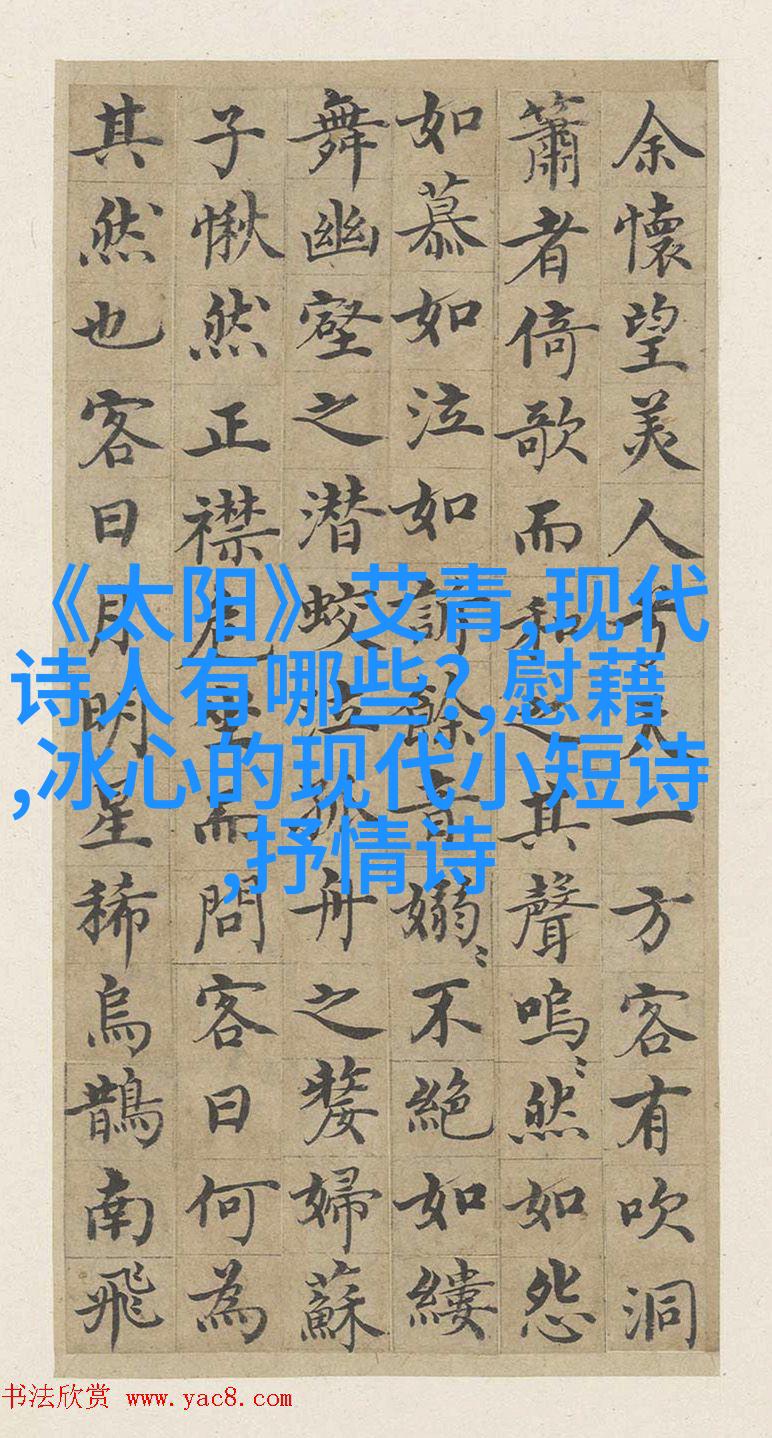 余懷望美人兮天一方客有吹洞
簫者倚歌而和之其聲嗚〻然如怨
如慕如泣如訴餘音嫋〻不絕如縷
舞幽壑之潜蛟泣孤舟之嫠婦蘇
子愀然正襟危坐而問客曰何為
其然也客曰月明星稀烏鵲南飛
《太阳》艾青,现代
诗人有哪些?,慰藉
,冰心的现代小短诗
,抒情诗
书法欣赏 www.yac8.com